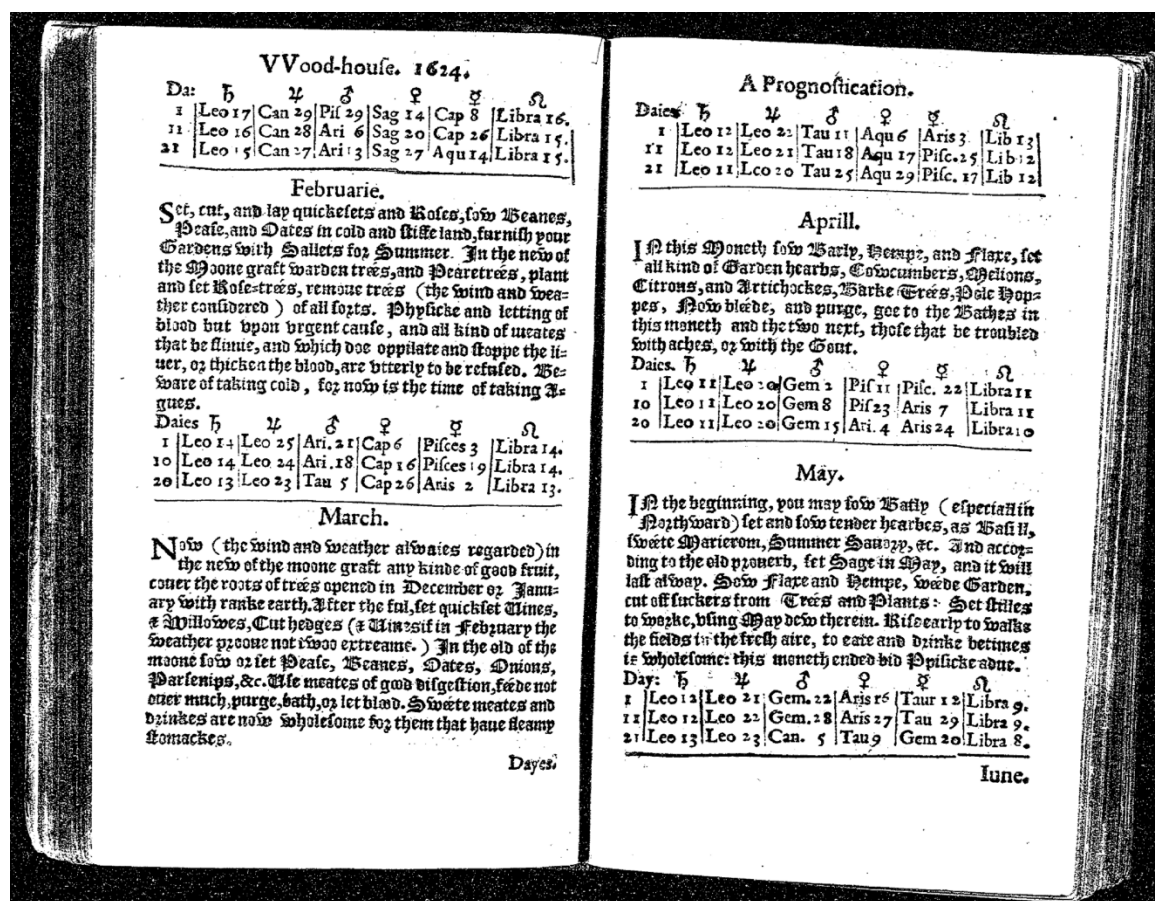 VVood-houſe. 1624.
Da: ♄ ♃ ♂ ♀ ☿ ☊
1 |Leo 17|Can 29|Piſ 29|Sag 14|Cap 8 |Libra 16.
11 |Leo 16|Can 28|Ari 6|Sag 20|Cap 26|Libra 15.
21 |Leo 15|Can 27|Ari 13|Sag 27|Aqu 14|Libra 15.
Februarie.
Set, cut, and lay quickeſets and Roſes, ſow Beanes,
Peaſe, and Oates in cold and ſtiffe land, furniſh your
Gardens with Sallets for Summer. In the new of
the Moone graft warden trees, and Pearetrees, plant
and ſet Roſe-trees, remoue trees (the wind and wea-
ther conſidered) of all ſorts. Phyſicke and letting of
blood but vpon vrgent cauſe, and all kind of meates
that be ſlimie, and which doe oppilate and ſtoppe the li-
uer, or thicken the blood, are vtterly to be refuſed. Be-
ware of taking cold, for now is the time of taking A-
gues.
Daies ♄ ♃ ♂ ♀ ☿ ☊
1 |Leo 14|Leo 25|Ari. 21|Cap 6 |Piſces 3 |Libra 14.
10 |Leo 14|Leo 24|Ari. 18|Cap 16|Piſces 19|Libra 14.
20 |Leo 13|Leo 23|Tau 5 |Cap 26|Aris 2 |Libra 13.
March.
Now (the wind and weather alwaies regarded) in
the new of the moone graft any kinde of good fruit,
couer the roots of trees opened in December or Janu-
ary with ranke earth. After the ful, ſet quickſet Uines,
& Willowes, Cut hedges (& Uines if in February the
weather prooue not twoo extreame.) In the old of the
moone ſow or ſet Peaſe, Beanes, Oates, Onions,
Parſenips, &c. Uſe meates of good diſgeſtion, feede not
ouer much, purge, bath, or let blood. Sweete meates and
drinkes are now wholeſome for them that haue fleamy
ſtomackes.
Dayes.
A Prognoſtication.
Daies ♄ ♃ ♂ ♀ ☿ ☊
1 |Leo 12|Leo 22|Tau 11|Aqu 6 |Aris 3 |Lib 13
11 |Leo 12|Leo 21|Tau 18|Aqu 17|Piſc. 25|Lib 12
21 |Leo 11|Leo 20 Tau 25|Aqu 29|Piſc. 17|Lib 12|
Aprill.
IN this Moneth ſow Barly, Hempe, and Flaxe, ſet
all kind of Garden hearbs, Cowcumbers, Melions,
Citrons, and Artichockes, Barke Trees, Pole Hop-
pes, Now bleede, and purge, goe to the Bathes in
this moneth and the two next, thoſe that be troubled
with aches, or with the Gout.
Daies. ♄ ♃ ♂ ♀ ☿ ☊
1 |Leo 11|Leo 20|Gem 2 |Piſ 11|Piſc. 22|Libra 11
10 |Leo 11|Leo 20|Gem 8 |Piſ 23|Aris 7 |Libra 11
20 |Leo 11|Leo 20|Gem 15|Ari. 4 Aris 24 |Libra 10
May.
IN the beginning, you may ſow Barly (eſpeciall in
Northward) ſet and ſow tender hearbes, as Baſill,
ſweete Marierom, Summer Sauory, &c. And accor-
ding to the old prouerb, ſet Sage in May, and it will
laſt alway. Sow Flaxe and Hempe, weede Garden,
cut off ſuckers from Trees and Plants: Set ſtilles
to worke, vſing May dew therein. Riſe early to walke
the fields in the freſh aire, to eate and drinke betimes
is wholeſome: this moneth ended bid Phiſicke adue.
Day: ♄ ♃ ♂ ♀ ☿ ☊
1 |Leo 12|Leo 21|Gem. 22|Aris 16 |Taur 12|Libra 9.
11|Leo 12|Leo 22|Gem. 28|Aris 27|Tau 29|Libra 9.
21|Leo 13|Leo 23|Can. 5 |Tau 9 |Gem 20|Libra 8.
Iune.